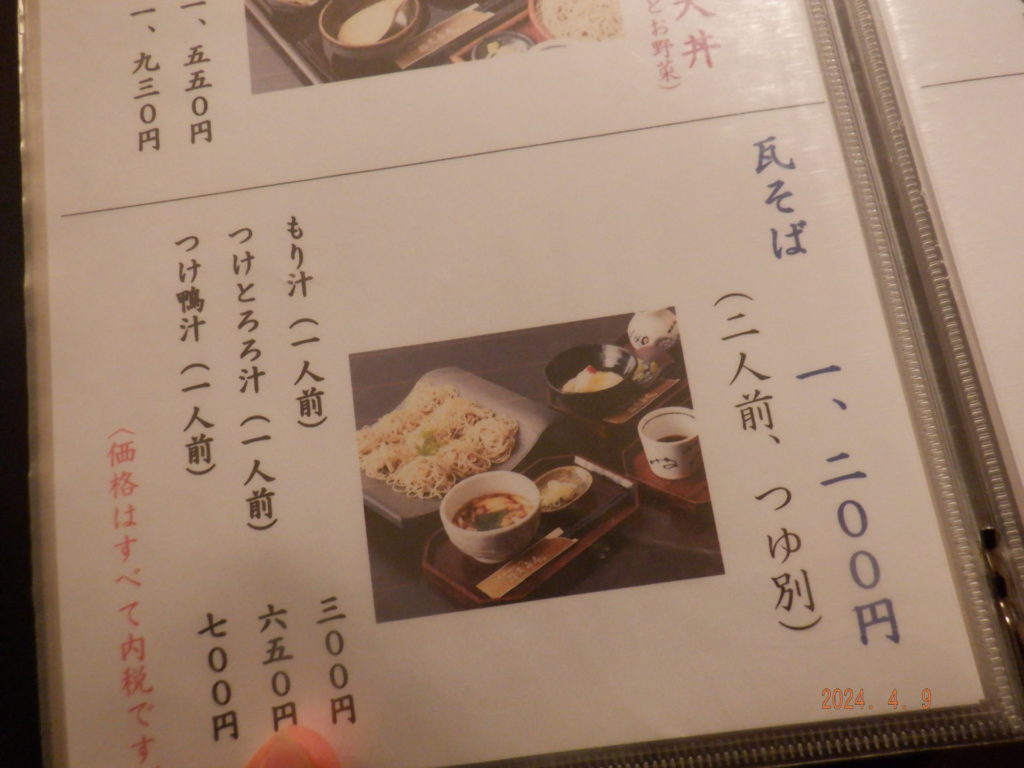 天丼
とお野菜)
一、五五〇円
一、九三〇円
瓦そば 一、二〇〇円
(二人前、つゆ別)
もり汁(一人前) 三〇〇円
つけとろろ汁(一人前) 六五〇円
つけ鴨汁(一人前) 七〇〇円
〈価格はすべて内税です
2024. 4. 9